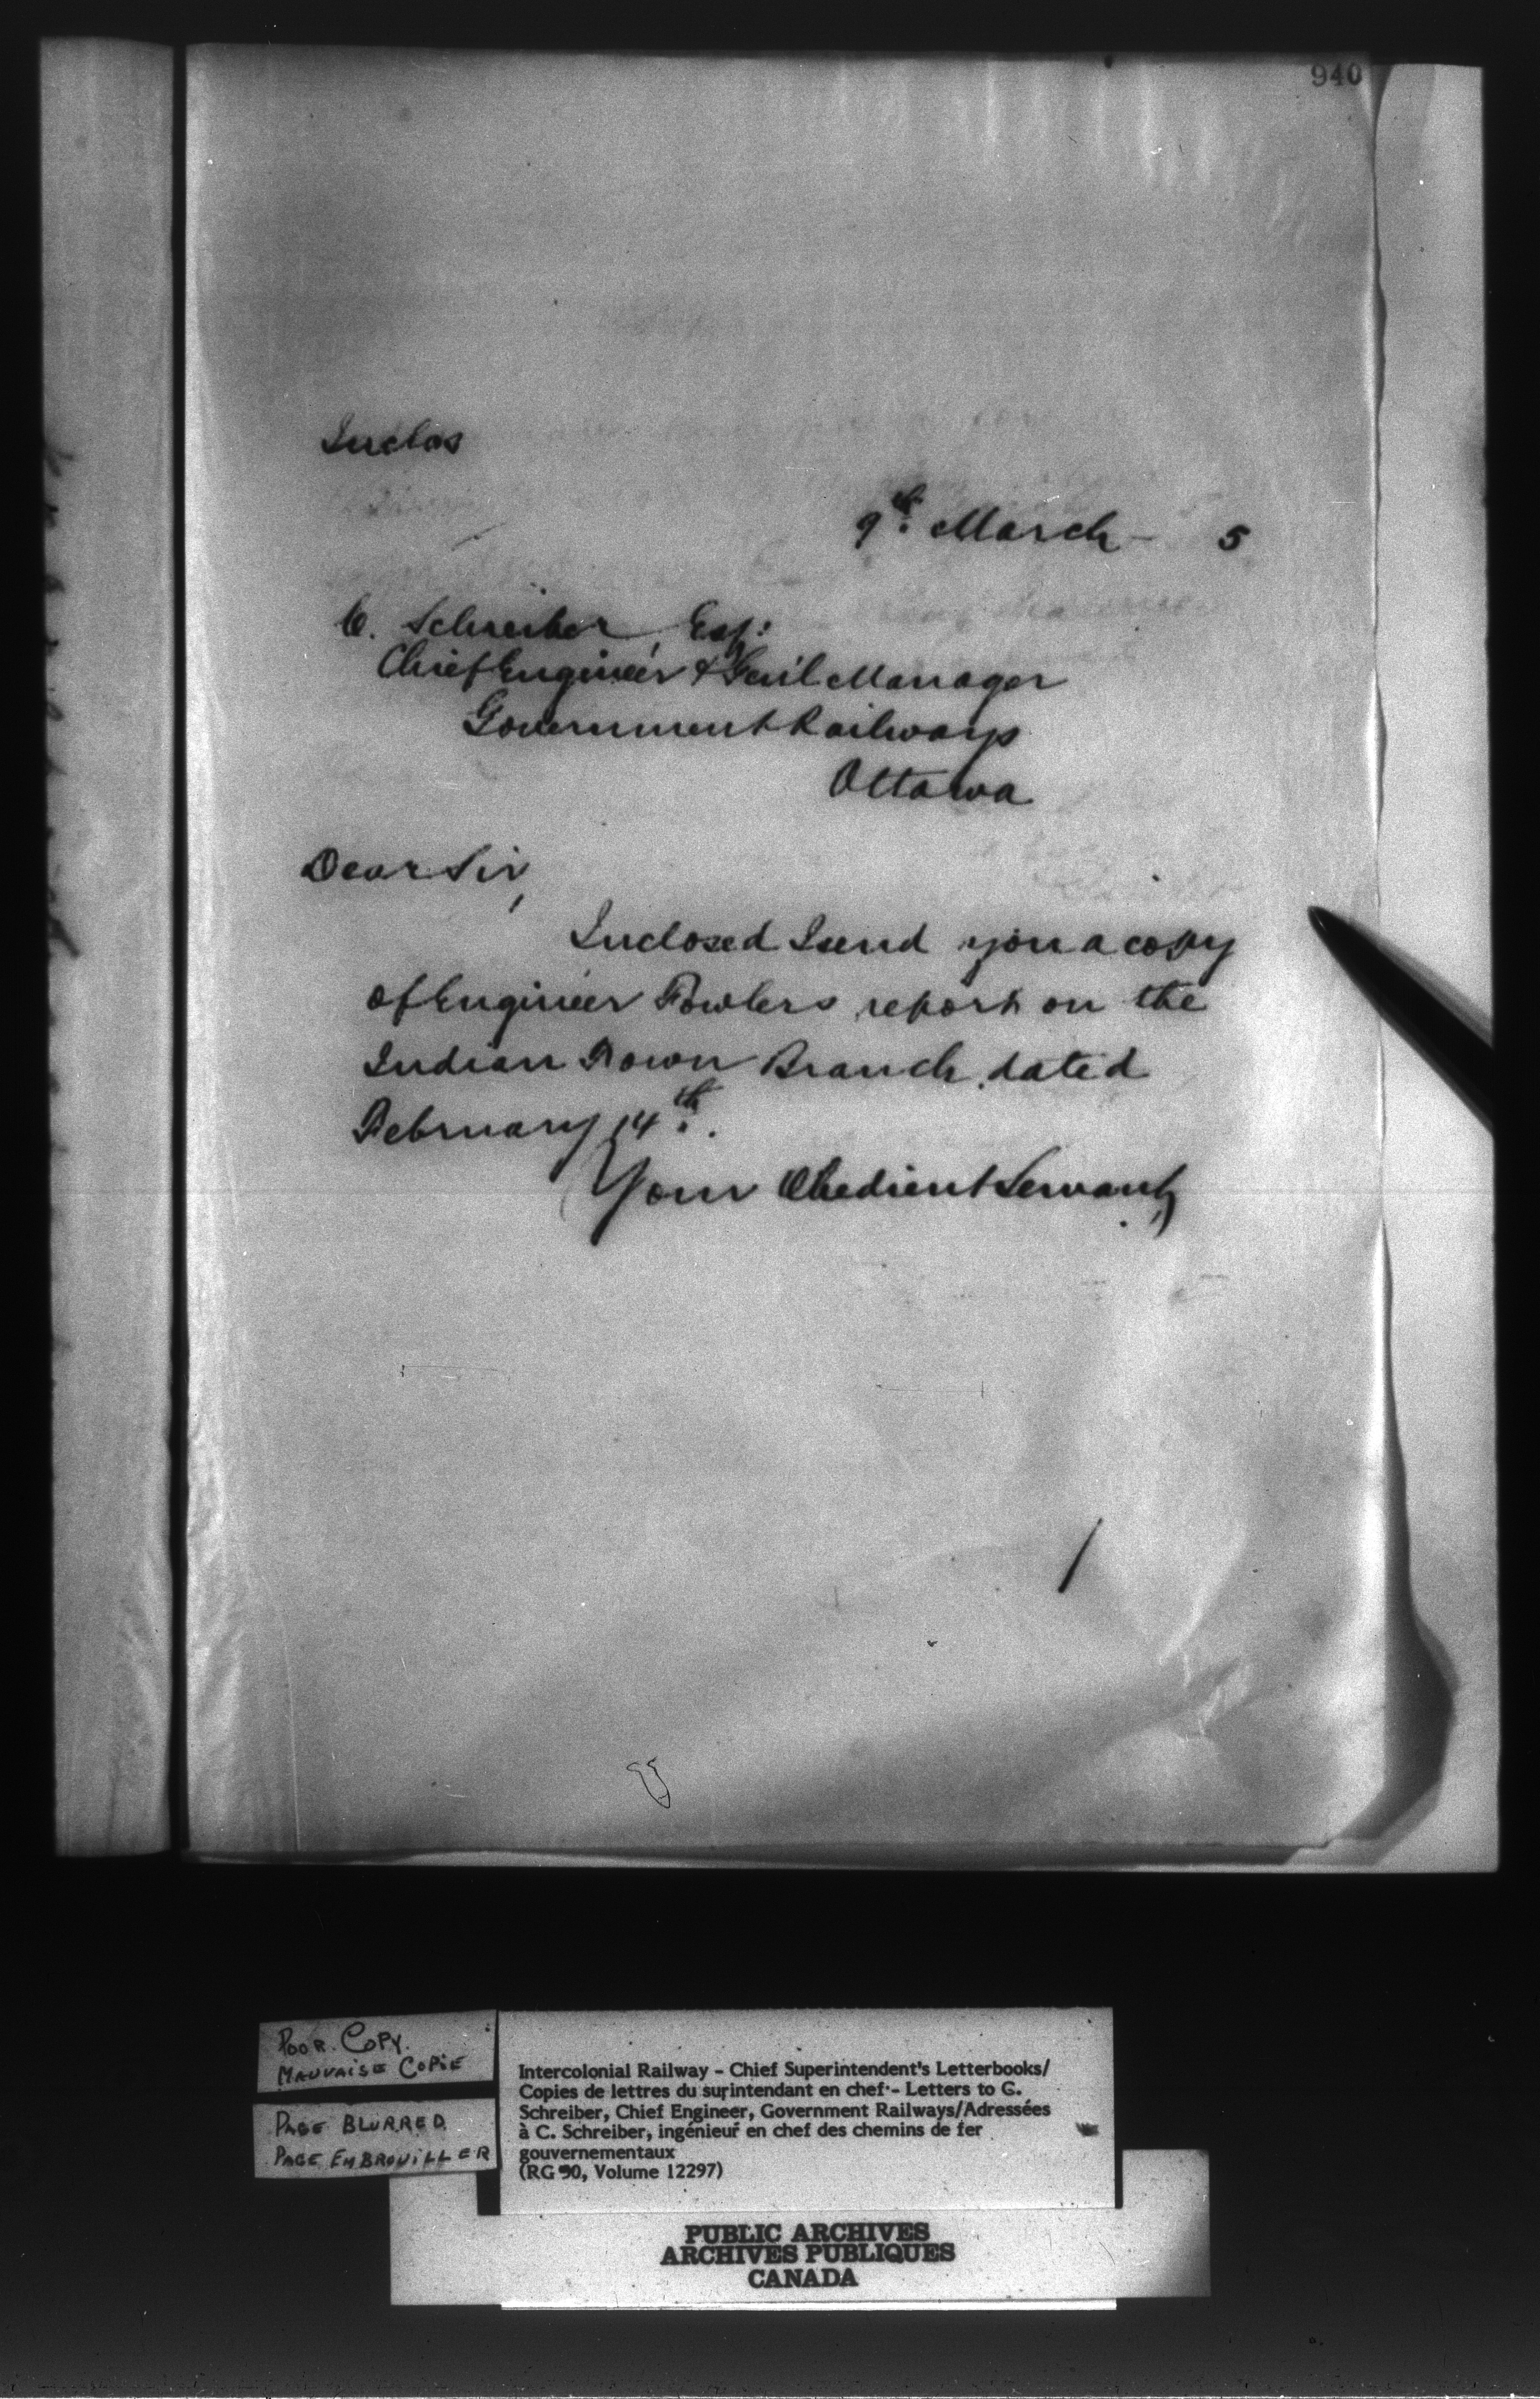 940
Inclos
9th. March - 5
C. Schreiber, Esq:
Chief Engineer & Gen'l Manager
Government Railways
Ottawa
Dear Sir,
Inclosed I send you a copy
of Engineer Fowlers report on the
Indian Town Branch dated
February 14th.
Your Obedient Servant,
POOR COPY.
MAUVAISE COPIE
PAGE BLURRED
PAGE EMBROUILLER
Intercolonial Railway - Chief Superintendent's Letterbooks/
Copies de lettres du surintendant en chef - Letters to C.
Schreiber, Chief Engineer, Government Railways/Adressées
à C. Schreiber, ingénieur en chef des chemins de fer
gouvernementaux
(RG 30, Volume 12297)
PUBLIC ARCHIVES
ARCHIVES PUBLIQUES
CANADA